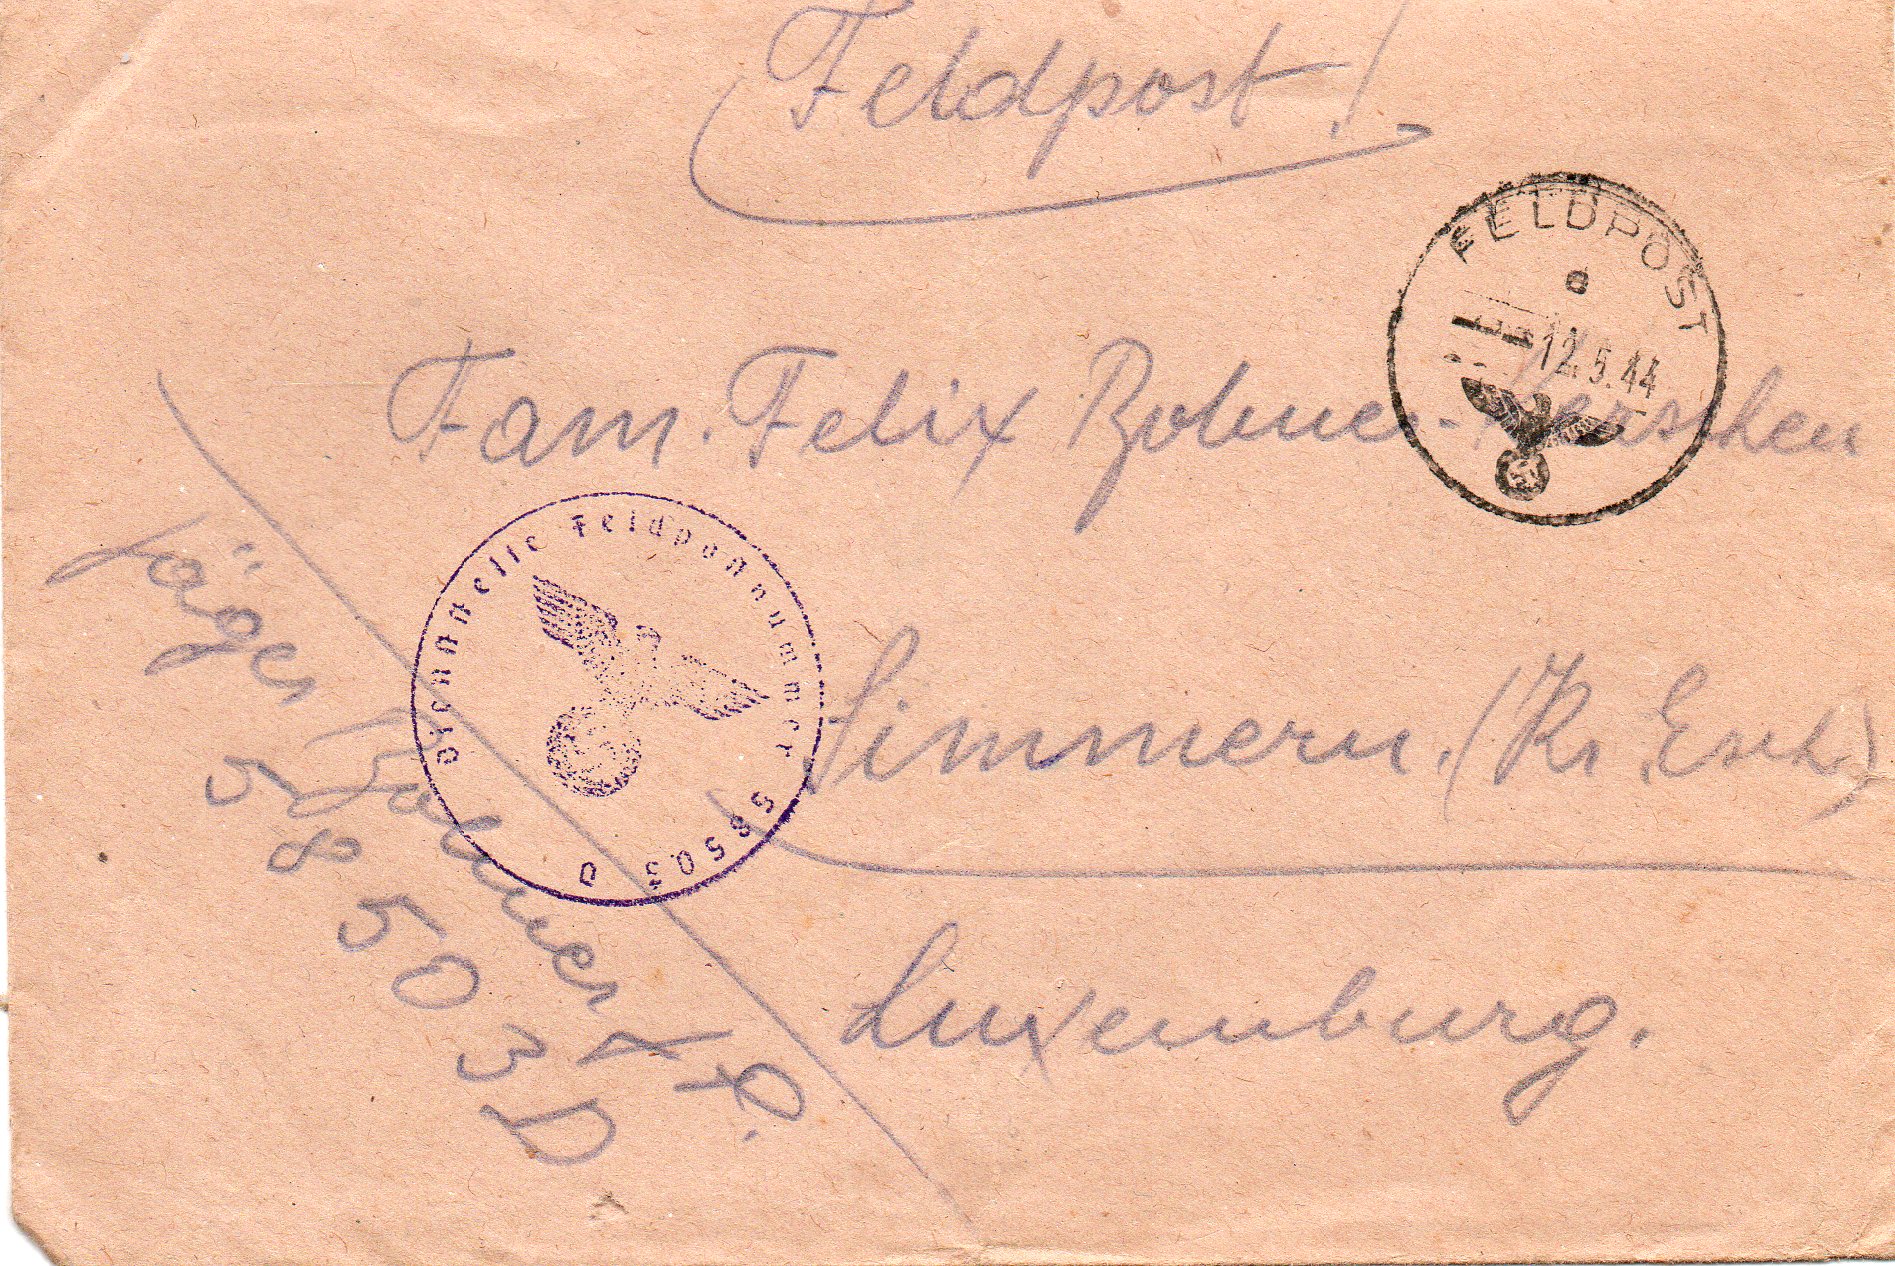 Feldpost!
FELDPOST
e
12.5.44
Fam. Felix Bohner-Kerschen
Dienststelle Feldpostnummer
58503 D
Simmern. (Kr. Esch)
Luxemburg.
Jäger Bohner
58503 D